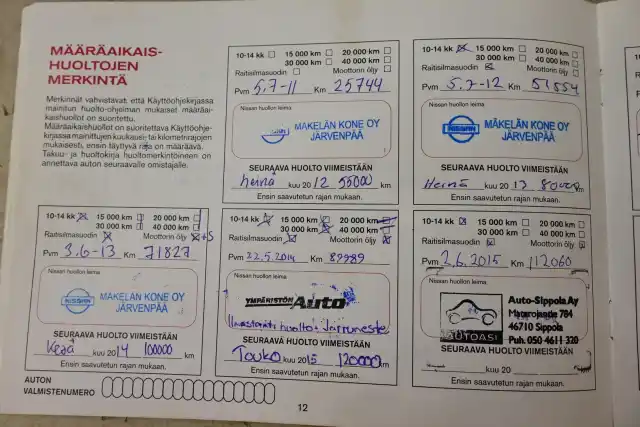 MÄÄRÄAIKAIS-
HUOLTOJEN
MERKINTÄ
Merkinnät vahvistavat, että Käyttöohjekirjassa
mainitun huolto-ohjelman mukaiset määräai-
kaishuollot on suoritettu.
Määräaikaishuollot on suoritettava Käyttöohje-
kirjassa mainittujen kuukausi- tai kilometrirajojen
mukaisesti, ensin täyttyvä raja on määräävä.
Takuu- ja huoltokirja huoltomerkintöineen on
annettava auton seuraavalle omistajalle.
10-14 kk 15 000 km 20 000 km
30 000 km 40 000 km
Raitisilmasuodin Moottorin öljy
Pvm 5.7-11 Km 25744
Nissan huollon leima
MÄKELÄN KONE OY
JÄRVENPÄÄ
SEURAAVA HUOLTO VIIMEISTÄÄN
heinä kuu 2012 55000 km
Ensin saavutetun rajan mukaan.
10-14 kk 15 000 km 20 000 km
30 000 km 40 000 km
Raitisilmasuodin Moottorin öljy
Pvm 5.7-12 Km 51554
Nissan huollon leima
NISSAN MÄKELÄN KONE OY
JÄRVENPÄÄ
SEURAAVA HUOLTO VIIMEISTÄÄN
Heinä kuu 2013 80000 km
Ensin saavutetun rajan mukaan.
10-14 kk 15 000 km 20 000 km
30 000 km 40 000 km
Raitisilmasuodin Moottorin öljy +S
Pvm 3.6-13 Km 71827
Nissan huollon leima
NISSAN MÄKELÄN KONE OY
JÄRVENPÄÄ
SEURAAVA HUOLTO VIIMEISTÄÄN
Kesä kuu 2014 100000 km
Ensin saavutetun rajan mukaan.
10-14 kk 15 000 km 20 000 km
30 000 km 40 000 km
Raitisilmasuodin Moottorin öljy
Pvm 22.5.2014 Km 89989
Nissan huollon leima
YMPÄRISTÖN Auto
Ilmastointi huolto + Jarruneste
SEURAAVA HUOLTO VIIMEISTÄÄN
Touko kuu 2015 120000 km
Ensin saavutetun rajan mukaan.
10-14 kk 15 000 km 20 000 km
30 000 km 40 000 km
Raitisilmasuodin Moottorin öljy
Pvm 2.6.2015 Km 112060
Nissan huollon leima
AUTOASI
Auto-Sippola Ay
784
46710 Sippola
Puh. 050 4611 320
SEURAAVA HUOLTO VIIMEISTÄÄN
kuu 20 km
Ensin saavutetun rajan mukaan.
AUTON
VALMISTENUMERO
12